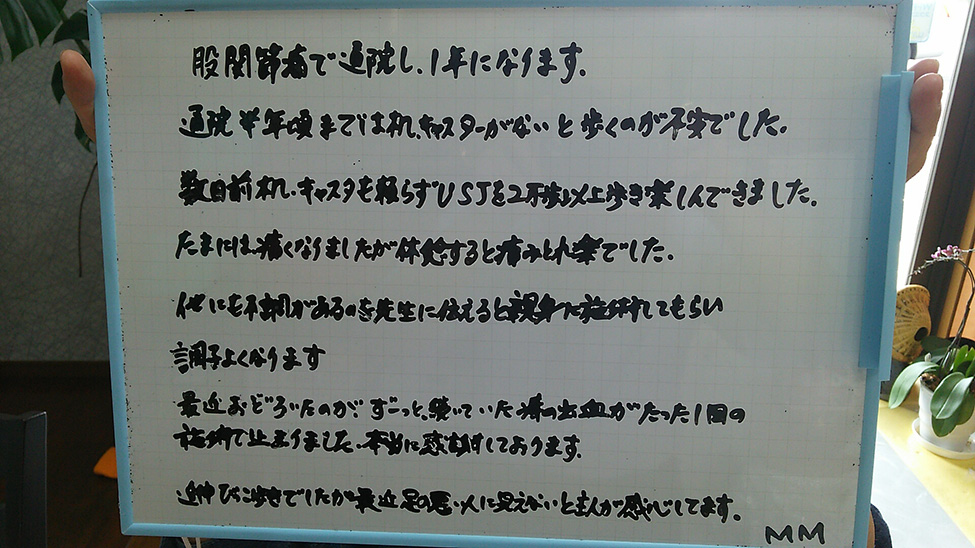 股関節痛で通院し、1年になります。
通院半年頃までは杖、キャスターがないと歩くのが不安でした。
数日前杖、キャスタも頼らずUSJを2万歩以上歩き楽しんできました。
たまには、痛くなりましたが休憩すると痛みとれ楽でした。
他にも不調があるのを先生に伝えると親身に施術してもらい
調子よくなります
最近おどろいたのが、ずーっと、続いていた痔の出血がたった1回の
施術で止まりました。本当に感謝しております。
迄伸びっこ歩きでしたが最近足の悪い人に見えないと主人が感心してます。
MM